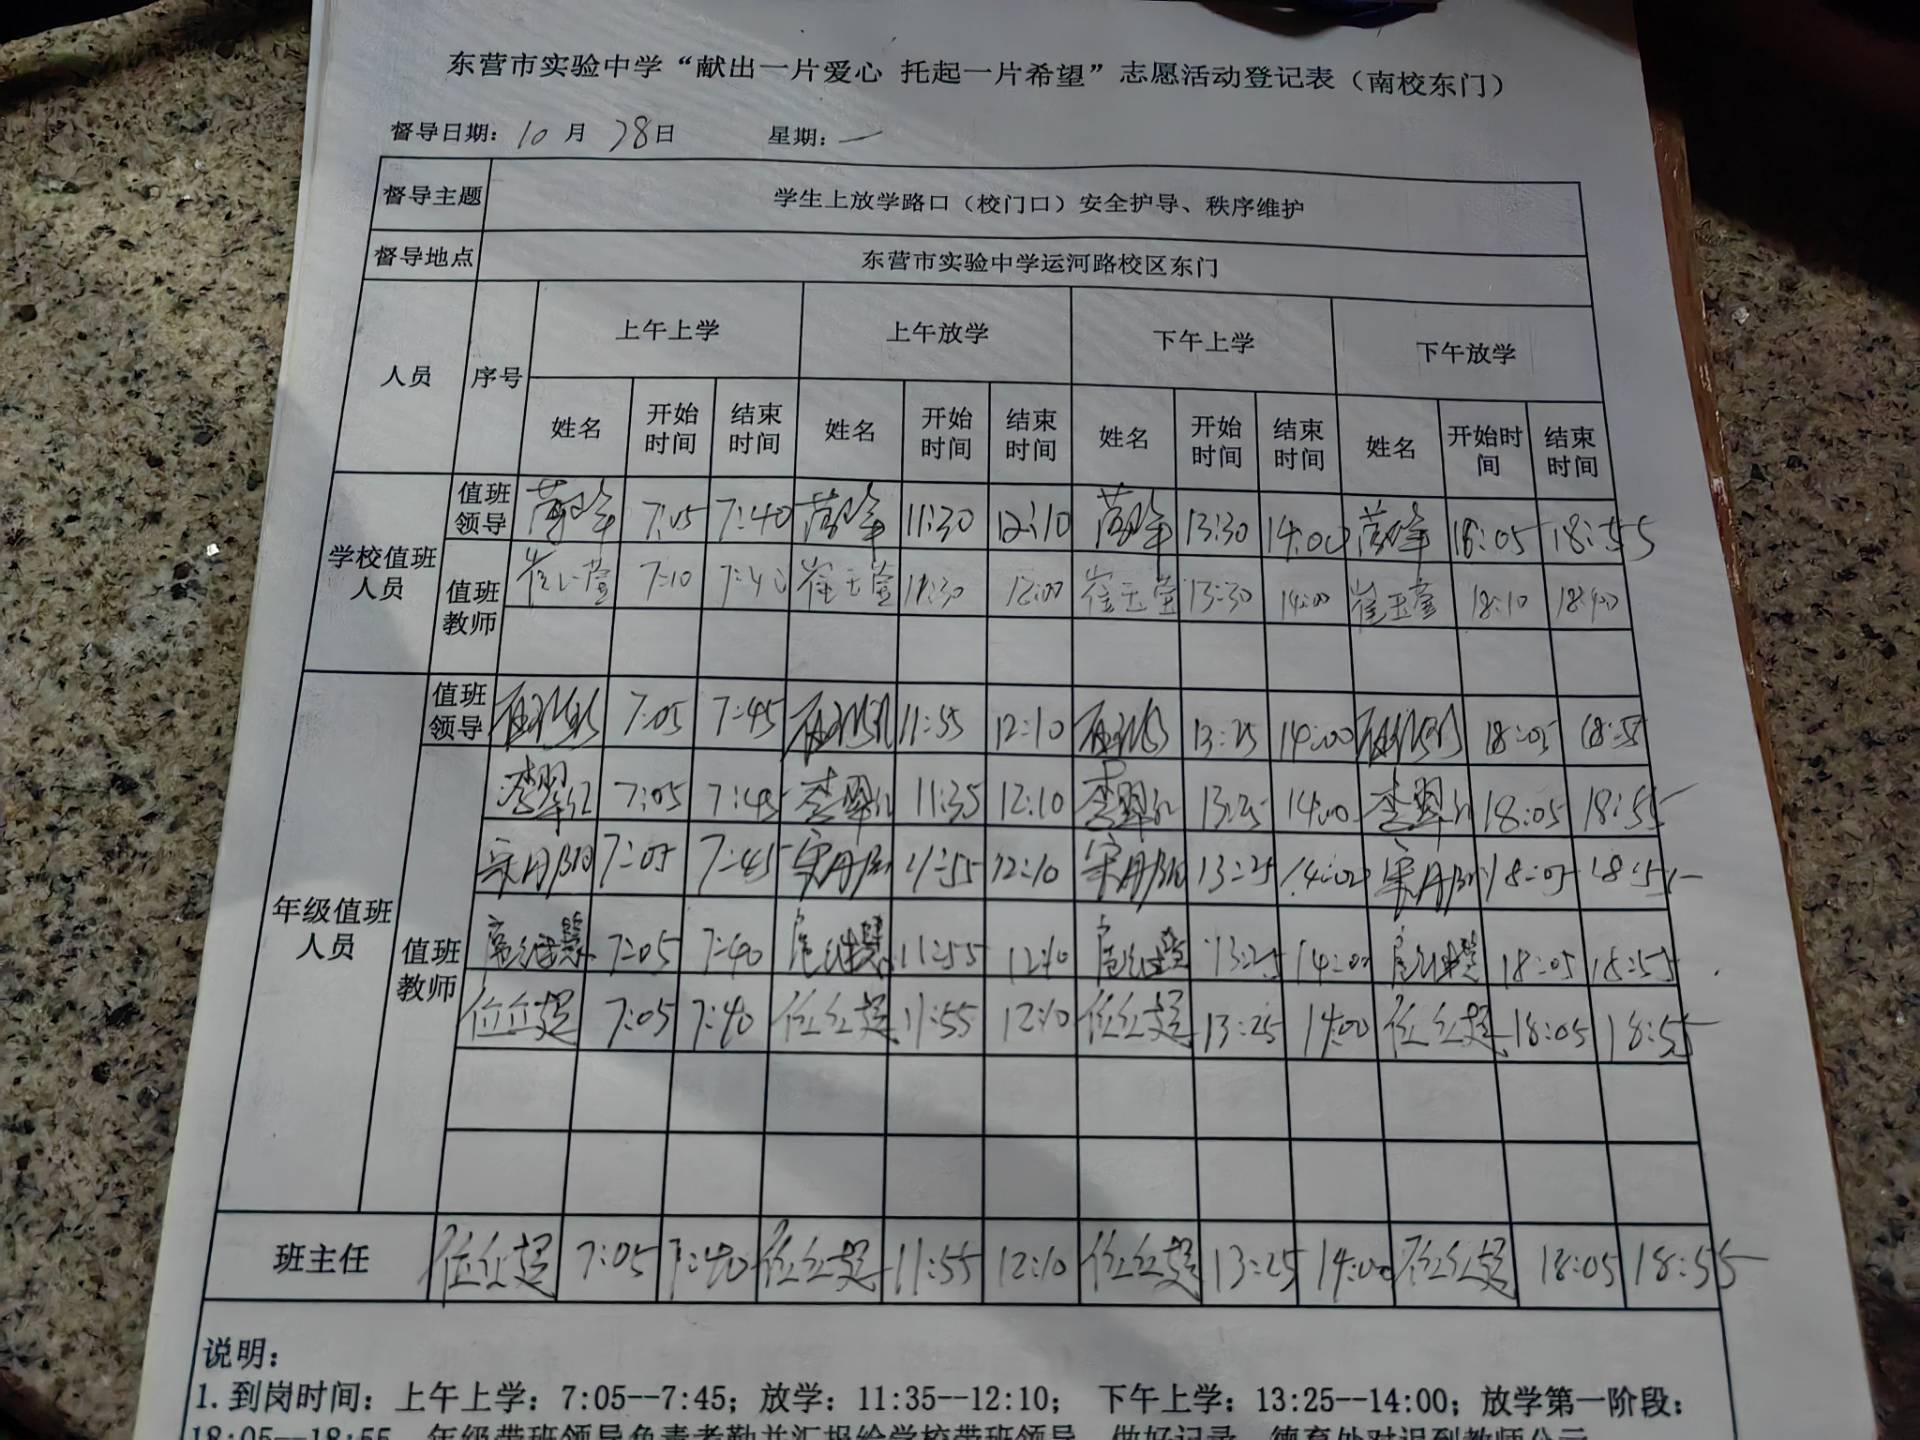 东营市实验中学“献出一片爱心 托起一片希望”志愿活动登记表（南校东门）
督导日期：10月28日 星期：一
督导主题 学生上放学路口（校门口）安全护导、秩序维护
督导地点 东营市实验中学运河路校区东门
人员 序号 上午上学 上午放学 下午上学 下午放学
姓名 开始时间 结束时间 姓名 开始时间 结束时间 姓名 开始时间 结束时间 姓名 开始时间 结束时间
学校值班人员
值班领导 7:05 7:40 11:30 12:10 13:30 14:00 18:05 18:55
值班教师 7:10 7:40 崔玉莹 11:30 12:00 崔玉莹 13:30 14:00 崔玉莹 18:10 18:40
年级值班人员
值班领导 7:05 7:45 11:55 12:10 13:25 14:00 18:05 18:55
值班教师
李翠红 7:05 7:45 李翠红 11:35 12:10 李翠红 13:25 14:00 李翠红 18:05 18:55
7:05 7:45 11:55 12:10 13:25 14:00 18:05 18:55
7:05 7:40 11:55 12:10 13:25 14:00 18:05 18:55
位红超 7:05 7:40 位红超 11:55 12:10 位红超 13:25 14:00 位红超 18:05 18:55
班主任 位红超 7:05 7:40 位红超 11:55 12:10 位红超 13:25 14:00 位红超 18:05 18:55
说明：
1.到岗时间：上午上学：7:05--7:45；放学：11:35--12:10； 下午上学：13:25--14:00；放学第一阶段：
18:05--18:55 年级带班领导负责考勤并汇报给学校带班领导 做好记录 德育处对迟到教师公示